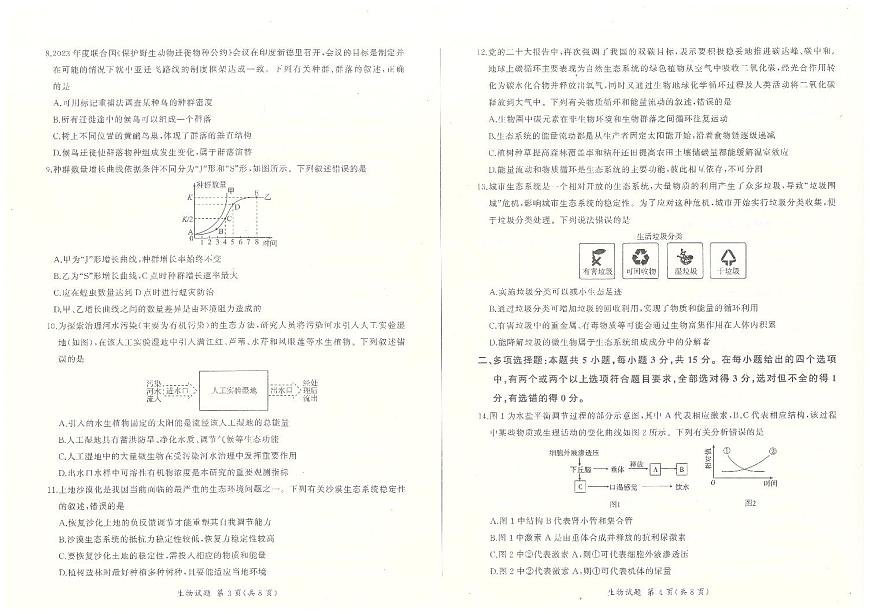 8.2023 年度联合国《保护野生动物迁徙物种公约》会议在印度新德里召开,会议的目标是制定并
在可能的情况下就中亚迁飞路线的制度框架达成一致。下列有关种群、群落的叙述,正确
的是
A.可用标记重捕法调查某种鸟的种群密度
B.所有迁徙途中的候鸟可以组成一个群落
C.树上不同位置的黄鹂鸟巢,体现了群落的垂直结构
D.候鸟迁徙使群落物种组成发生变化,属于群落演替
9.种群数量增长曲线依据条件不同分为“J”形和“S”形,如图所示。下列叙述错误的是
种群数量
甲
K
E
乙
D
K/2
C
A
B
0
1 2 3 4 5 6 7 8 时间
A.甲为“J”形增长曲线,种群增长率始终不变
B.乙为“S”形增长曲线,C 点时种群增长速率最大
C.应在蝗虫数量达到 D 点时进行蝗灾防治
D.甲、乙增长曲线之间的数量差异是由环境阻力造成的
10.为探索治理河水污染(主要为有机污染)的生态方法,研究人员将污染河水引入人工实验湿
地(如图),在该人工实验湿地中引入满江红、芦苇、水芹和凤眼莲等水生植物。下列叙述错
误的是
污染河水流入
进水口
人工实验湿地
出水口
经处理后流出
A.引入的水生植物固定的太阳能是流经该人工湿地的总能量
B.人工湿地具有蓄洪防旱、净化水质、调节气候等生态功能
C.人工湿地中的大量微生物在受污染河水治理中发挥重要作用
D.出水口水样中可溶性有机物浓度是本研究的重要观测指标
11.土地沙漠化是我国当前面临的最严重的生态环境问题之一。下列有关沙漠生态系统稳定性
的叙述,错误的是
A.恢复沙化土地的负反馈调节才能重塑其自我调节能力
B.沙漠生态系统的抵抗力稳定性较低,恢复力稳定性较高
C.要恢复沙化土地的稳定性,需投入相应的物质和能量
D.植树造林时最好种植多种树种,且要能适应当地环境
生物试题 第 3 页(共 8 页)
12.党的二十大报告中,再次强调了我国的双碳目标,表示要积极稳妥地推进碳达峰、碳中和。
地球上碳循环主要表现为自然生态系统的绿色植物从空气中吸收二氧化碳,经光合作用转
化为碳水化合物并释放出氧气,同时又通过生物地球化学循环过程及人类活动将二氧化碳
释放到大气中。下列有关物质循环和能量流动的叙述,错误的是
A.生物圈中碳元素在非生物环境和生物群落之间循环往复运动
B.生态系统的能量流动都是从生产者固定太阳能开始,沿着食物链逐级递减
C.植树种草提高森林覆盖率和秸秆还田提高农田土壤储碳量都能缓解温室效应
D.能量流动和物质循环是生态系统的主要功能,彼此相互依存,不可分割
13.城市生态系统是一个相对开放的生态系统,大量物质的利用产生了众多垃圾,导致“垃圾围
城”危机,影响城市生态系统的稳定性。为了应对这种危机,城市开始实行垃圾分类收集,便
于垃圾分类处理。下列说法错误的是
生活垃圾分类
有害垃圾
可回收物
湿垃圾
干垃圾
A.实施垃圾分类可以减小生态足迹
B.通过垃圾分类可增加垃圾的回收利用,实现了物质和能量的循环利用
C.有害垃圾中的重金属、有毒物质等可能会通过生物富集作用在人体内积累
D.能降解垃圾的微生物属于生态系统组成成分中的分解者
二、多项选择题:本题共 5 小题,每小题 3 分,共 15 分。在每小题给出的四个选项
中,有两个或两个以上选项符合题目要求,全部选对得 3 分,选对但不全的得 1
分,有选错的得 0 分。
14.图 1 为水盐平衡调节过程的部分示意图,其中 A 代表相应激素,B、C 代表相应结构,该过程
中某些物质或生理活动的变化曲线如图 2 所示。下列有关分析错误的是
细胞外液渗透压
下丘脑
垂体
释放
A
B
C
口渴感觉
饮水
图1
相对值
①
②
0
时间
图2
A.图 1 中结构 B 代表肾小管和集合管
B.图 1 中激素 A 是由垂体合成并释放的抗利尿激素
C.图 2 中②代表激素 A,则①可代表细胞外液渗透压
D.图 2 中②代表激素 A,则①可代表机体的尿量
生物试题 第 4 页(共 8 页)